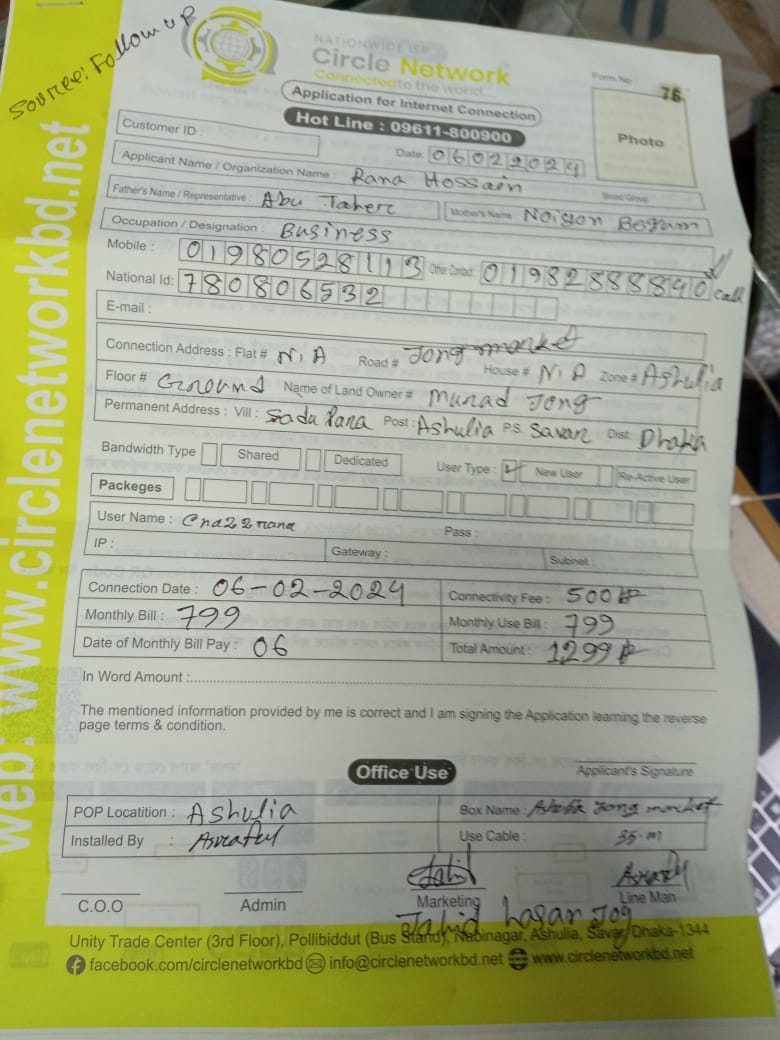 Source: Follow up
NATIONWIDE ISP
Circle Network
Connected to the world
Application for Internet Connection
Hot Line : 09611-800900
Form No : 76
Photo
Customer ID :
Date 06022024
Applicant Name / Organization Name : Rana Hossain
Blood Group
Father's Name / Representative : Abu Taher Mother's Name Begum
Occupation / Designation : Business
Mobile : 01980528113 Other Contact 01982888840 call
National Id: 780806532
E-mail :
Connection Address : Flat # N.A Road # Jong market House # N.A Zone # Ashulia
Floor # Ground Name of Land Owner # Murad Jong
Permanent Address : Vill : Sadu Para Post : Ashulia P.S Savar Dist: Dhaka
Bandwidth Type Shared Dedicated User Type : New User Re-Active User
Packeges
User Name : Pass :
IP : Gateway : Subnet :
Connection Date : 06-02-2024 Connectivity Fee : 500
Monthly Bill : 799 Monthly Use Bill : 799
Date of Monthly Bill Pay : 06 Total Amount : 1299
In Word Amount :
The mentioned information provided by me is correct and I am signing the Application learning the reverse
page terms & condition.
Applicant's Signature
Office Use
POP Locatition : Ashulia Box Name : Jong market
Installed By : Asraful Use Cable : 35.m
C.O.O Admin Marketing Line Man
Jahid
Unity Trade Center (3rd Floor), Pollibiddut (Bus Stand), Nabinagar, Ashulia, Savar, Dhaka-1344
facebook.com/circlenetworkbd info@circlenetworkbd.net www.circlenetworkbd.net
web: www.circlenetworkbd.net